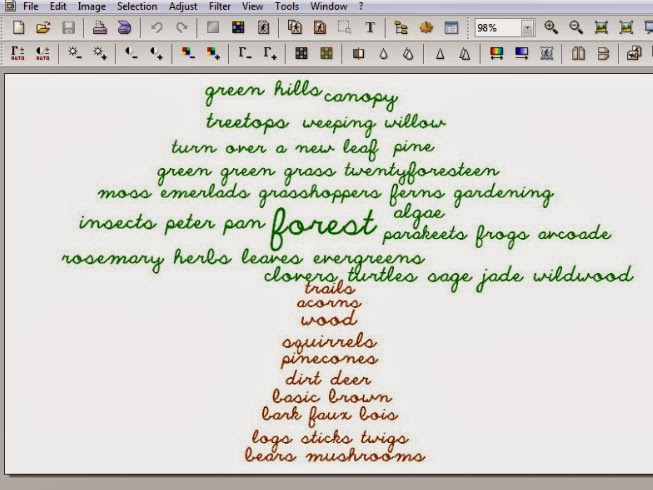 File Edit Image Selection Adjust Filter Tools Window ?
T 98%
AUTO AUTO
green hills canopy
treetops weeping willow
turn over a new leaf pine
green green grass twentyforesteen
moss emerlads grasshoppers ferns gardening
algae
insects peter pan forest
parakeets frogs avocade
rosemary herbs leaves evergreens
clovers turtles sage jade wildwood
trails
acorns
wood
squirrels
pinecones
dirt deer
basic brown
bark faux bois
logs sticks twigs
bears mushrooms